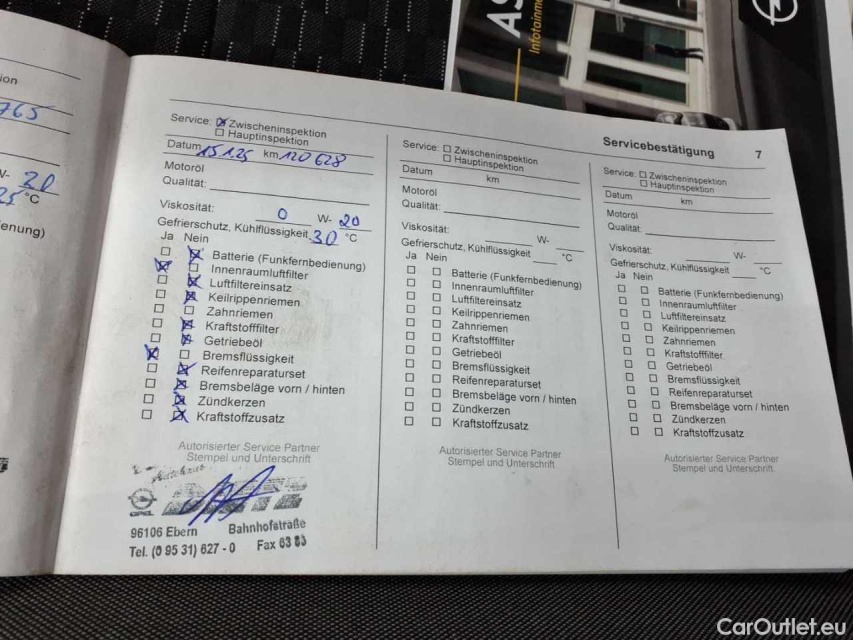 AS
Infotainme
ion
765
W- 20
25 °C
enung)
Servicebestätigung 7
Service: ☒ Zwischeninspektion
☐ Hauptinspektion
Datum 15.1.25 km 120 628
Motoröl
Qualität:
Viskosität: 0 W- 20
Gefrierschutz, Kühlflüssigkeit -30 °C
Ja Nein
☐ ☒ Batterie (Funkfernbedienung)
☒ ☐ Innenraumluftfilter
☐ ☒ Luftfiltereinsatz
☐ ☒ Keilrippenriemen
☐ ☐ Zahnriemen
☐ ☒ Kraftstofffilter
☐ ☒ Getriebeöl
☒ ☐ Bremsflüssigkeit
☐ ☒ Reifenreparaturset
☐ ☒ Bremsbeläge vorn / hinten
☐ ☒ Zündkerzen
☐ ☒ Kraftstoffzusatz
Autorisierter Service Partner
Stempel und Unterschrift
Autohaus
OPEL
96106 Ebern Bahnhofstraße
Tel. (0 95 31) 627 - 0 Fax 63 83
Service: ☐ Zwischeninspektion
☐ Hauptinspektion
Datum km
Motoröl
Qualität:
Viskosität: W-
Gefrierschutz, Kühlflüssigkeit °C
Ja Nein
☐ ☐ Batterie (Funkfernbedienung)
☐ ☐ Innenraumluftfilter
☐ ☐ Luftfiltereinsatz
☐ ☐ Keilrippenriemen
☐ ☐ Zahnriemen
☐ ☐ Kraftstofffilter
☐ ☐ Getriebeöl
☐ ☐ Bremsflüssigkeit
☐ ☐ Reifenreparaturset
☐ ☐ Bremsbeläge vorn / hinten
☐ ☐ Zündkerzen
☐ ☐ Kraftstoffzusatz
Autorisierter Service Partner
Stempel und Unterschrift
Service: ☐ Zwischeninspektion
☐ Hauptinspektion
Datum km
Motoröl
Qualität:
Viskosität: W-
Gefrierschutz, Kühlflüssigkeit °C
Ja Nein
☐ ☐ Batterie (Funkfernbedienung)
☐ ☐ Innenraumluftfilter
☐ ☐ Luftfiltereinsatz
☐ ☐ Keilrippenriemen
☐ ☐ Zahnriemen
☐ ☐ Kraftstofffilter
☐ ☐ Getriebeöl
☐ ☐ Bremsflüssigkeit
☐ ☐ Reifenreparaturset
☐ ☐ Bremsbeläge vorn / hinten
☐ ☐ Zündkerzen
☐ ☐ Kraftstoffzusatz
Autorisierter Service Partner
Stempel und Unterschrift
CarOutlet.eu